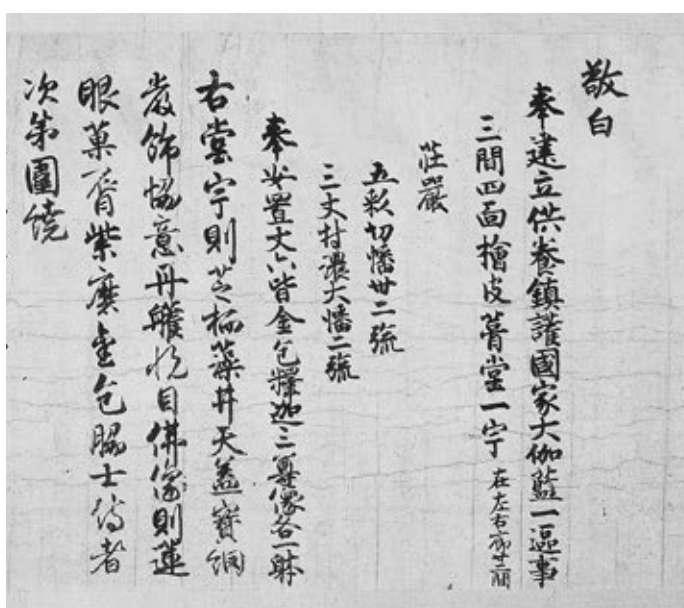 敬白
奉建立供養鎮護國家大伽藍一區事
三間四面檜皮葺堂一宇 在左右廊廿二間
莊嚴
五彩切幡卅二旒
三丈村濃大幡二旒
奉安置丈六皆金色釋迦三尊像各一躰
右堂宇則芝栭藻井天蓋寶網
嚴飾協意丹雘悦目佛像則蓮
眼菓脣紫磨金色脇士侍者
次第圍繞